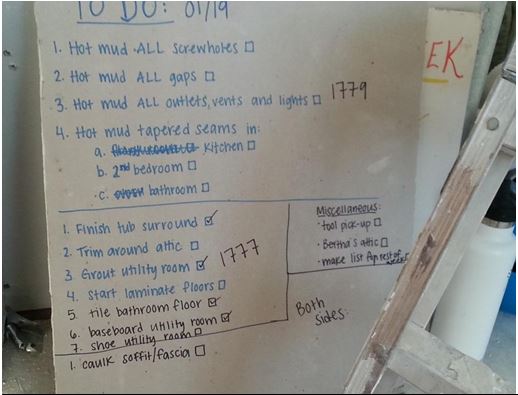 TO DO: 01/19
1. Hot mud ALL screwholes
2. Hot mud ALL gaps
3. Hot mud ALL outlets, vents and lights
1779
EK
4. Hot mud tapered seams in:
a. kitchen
b. 2nd bedroom
c. bathroom
1. Finish tub surround
2. Trim around attic
3. Grout utility room
1777
4. Start laminate floors
5. tile bathroom floor
6. baseboard utility room
7. shoe utility room
1. caulk soffit/fascia
Miscellaneous:
· tool pick-up
· Bertha's attic
· make list for rest of week
Both
sides: